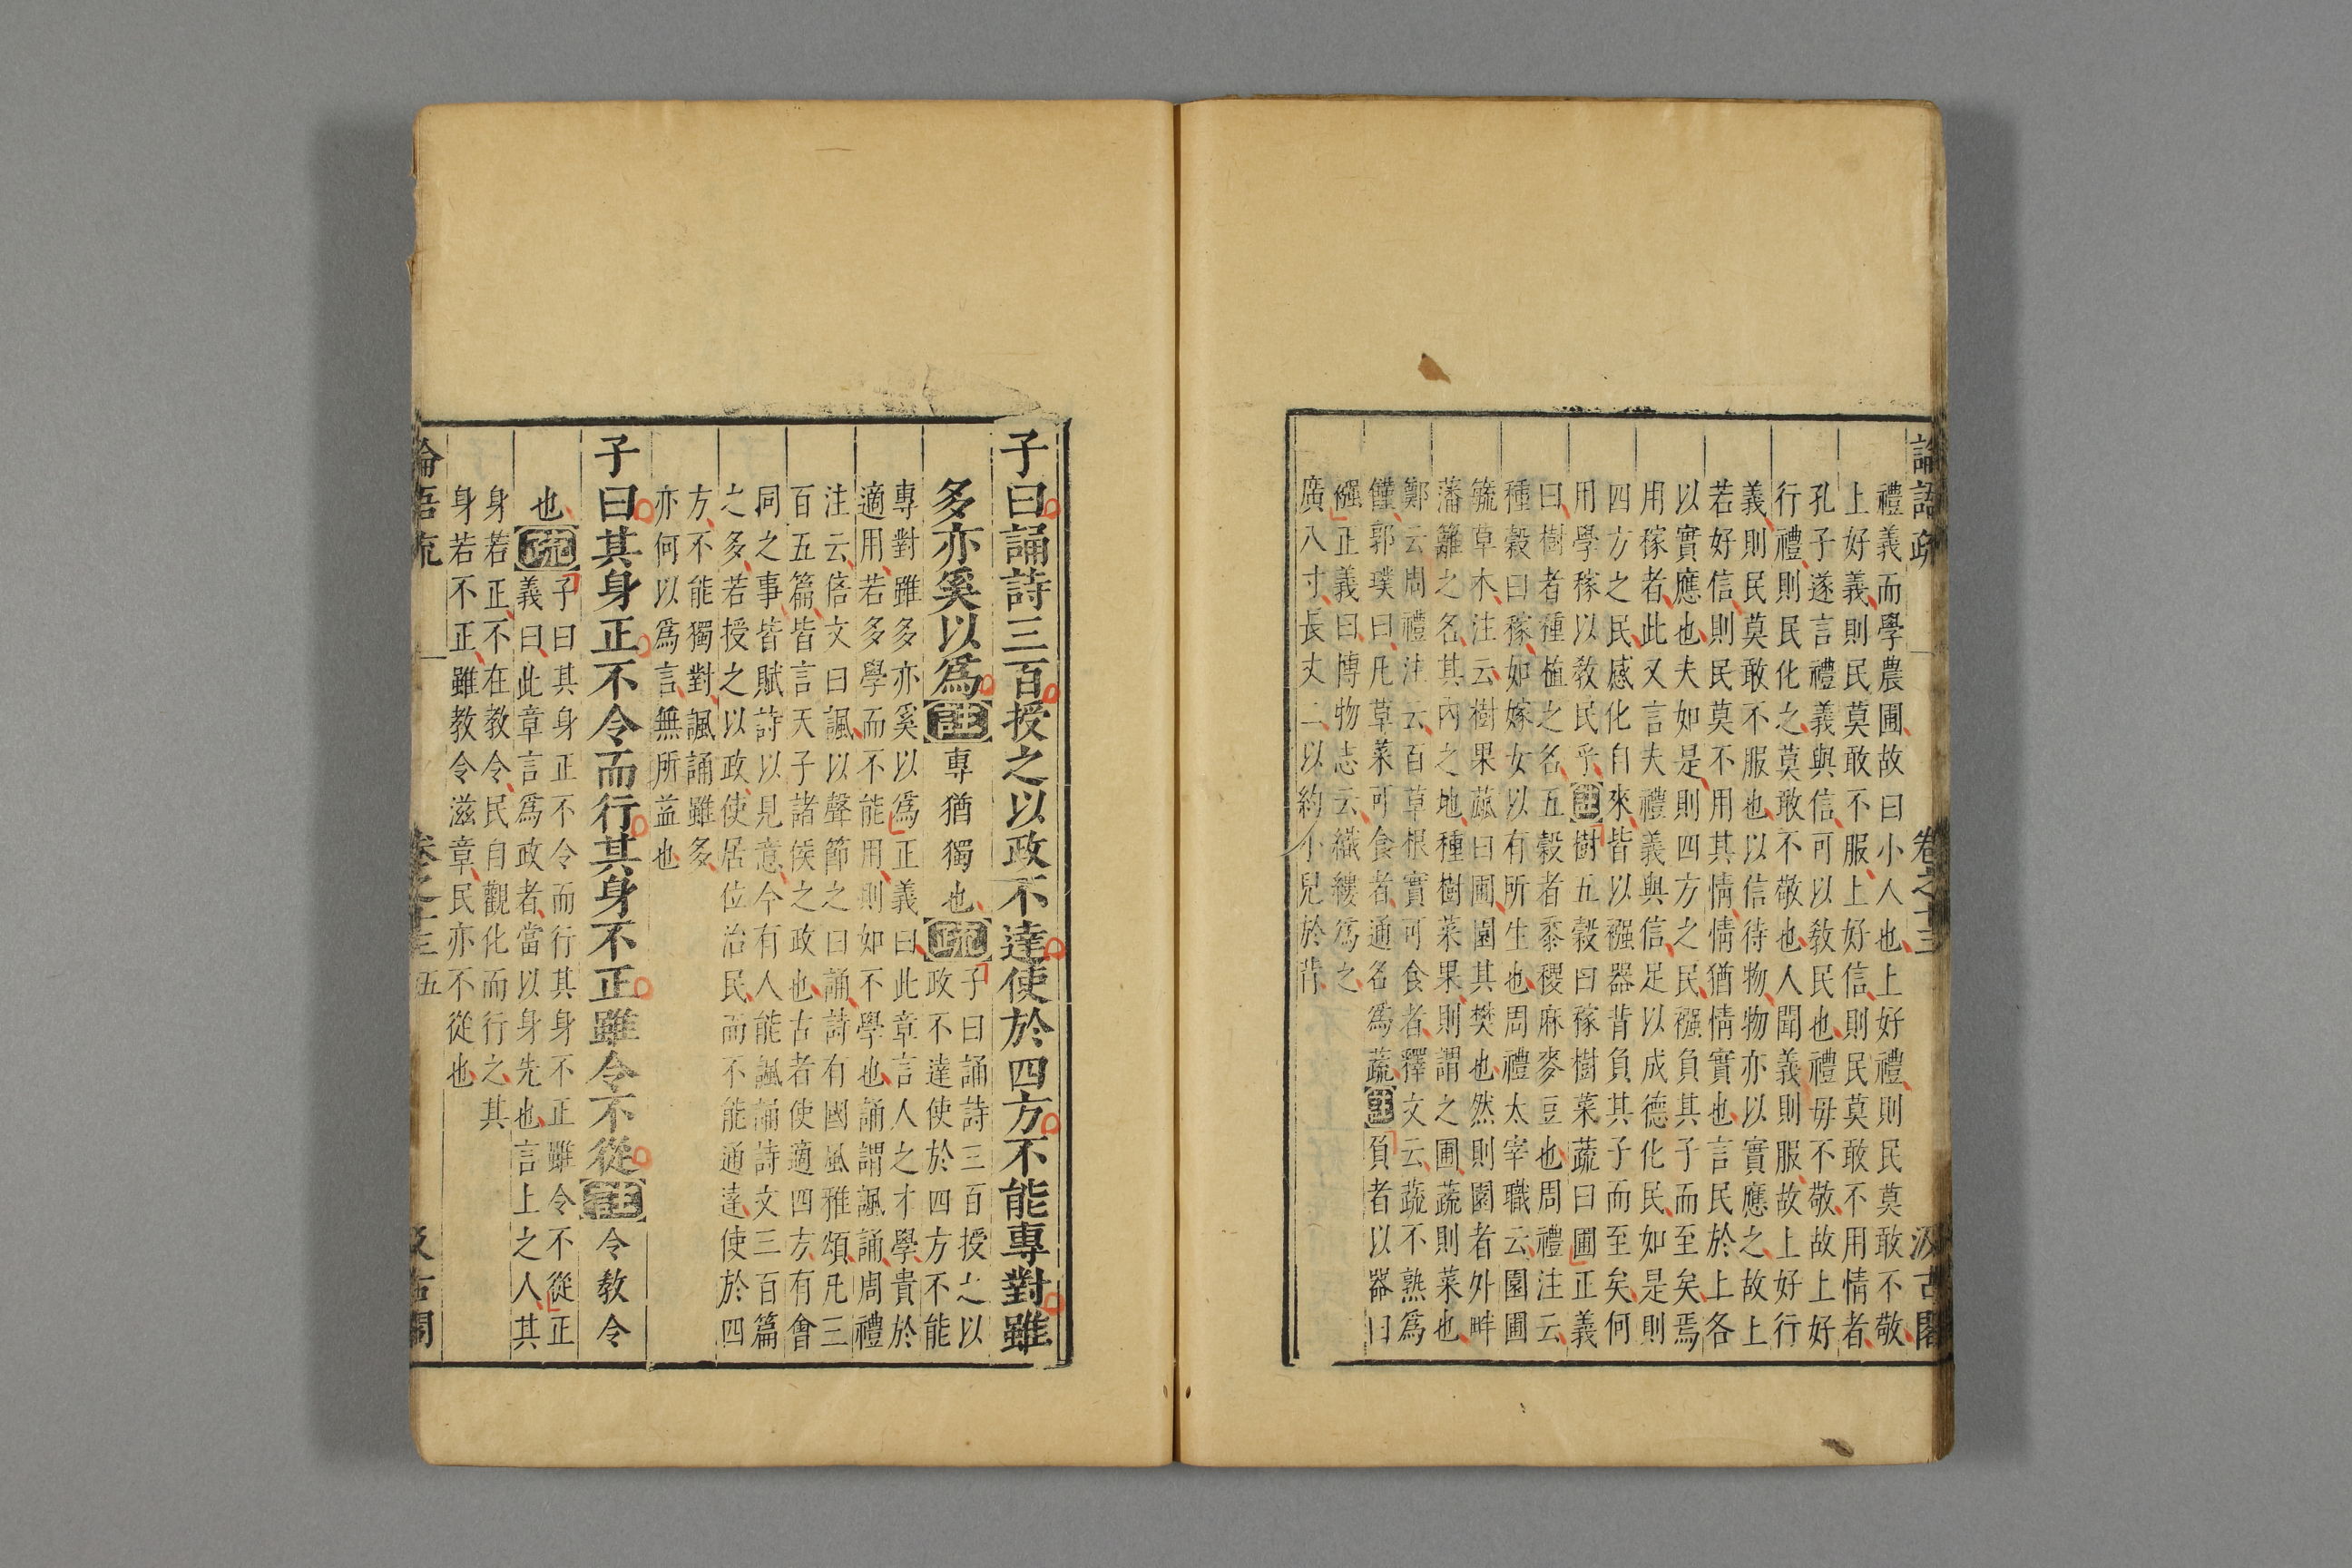 論語疏 卷之十三 汲古閣
禮義而學農圃故曰小人也上好禮則民莫敢不敬
上好義則民莫敢不服上好信則民莫敢不用情者
孔子遂言禮義與信可以教民也禮毋不敬故上好
行禮則民化之莫敢不敬也人聞義則服故上好行
義則民莫敢不服也以信待物物亦以實應之故上
若好信則民莫不用其情情猶情實也言民於上各
以實應也夫如是則四方之民襁負其子而至矣焉
用稼者此又言夫禮義與信足以成德化民如是則
四方之民感化自來皆以襁器背負其子而至矣何
用學稼以教民乎註樹五穀曰稼樹菜蔬曰圃正義
曰樹者種植之名五穀者黍稷麻麥豆也周禮注云
種穀曰稼如嫁女以有所生也周禮太宰職云園圃
毓草木注云樹果蓏曰圃園其樊也然則園者外畔
藩籬之名其內之地種樹菜果則謂之圃蔬則菜也
鄭云周禮注云百草根實可食者釋文云蔬不熟爲
饉郭璞曰凡草菜可食者通名爲蔬註負者以器曰
襁正義曰博物志云織縷爲之
廣八寸長丈二以約小兒於背
子曰誦詩三百授之以政不達使於四方不能專對雖
多亦奚以爲註專猶獨也疏子曰誦詩三百授之以
政不達使於四方不能
專對雖多亦奚以爲正義曰此章言人之才學貴於
適用若多學而不能用則如不學也誦謂諷誦周禮
注云倍文曰諷以聲節之曰誦詩有國風雅頌凡三
百五篇皆言天子諸侯之政也古者使適四方有會
同之事皆賦詩以見意今有人能諷誦詩文三百篇
之多若授之以政使居位治民而不能通達使於四
方不能獨對諷誦雖多
亦何以爲言無所益也
子曰其身正不令而行其身不正雖令不從註令教令
也疏子曰其身正不令而行其身不正雖令不從正
義曰此章言爲政者當以身先也言上之人其
身若正不在教令民自觀化而行之其
身若不正雖教令滋章民亦不從也
論語疏 卷之十三 五 汲古閣